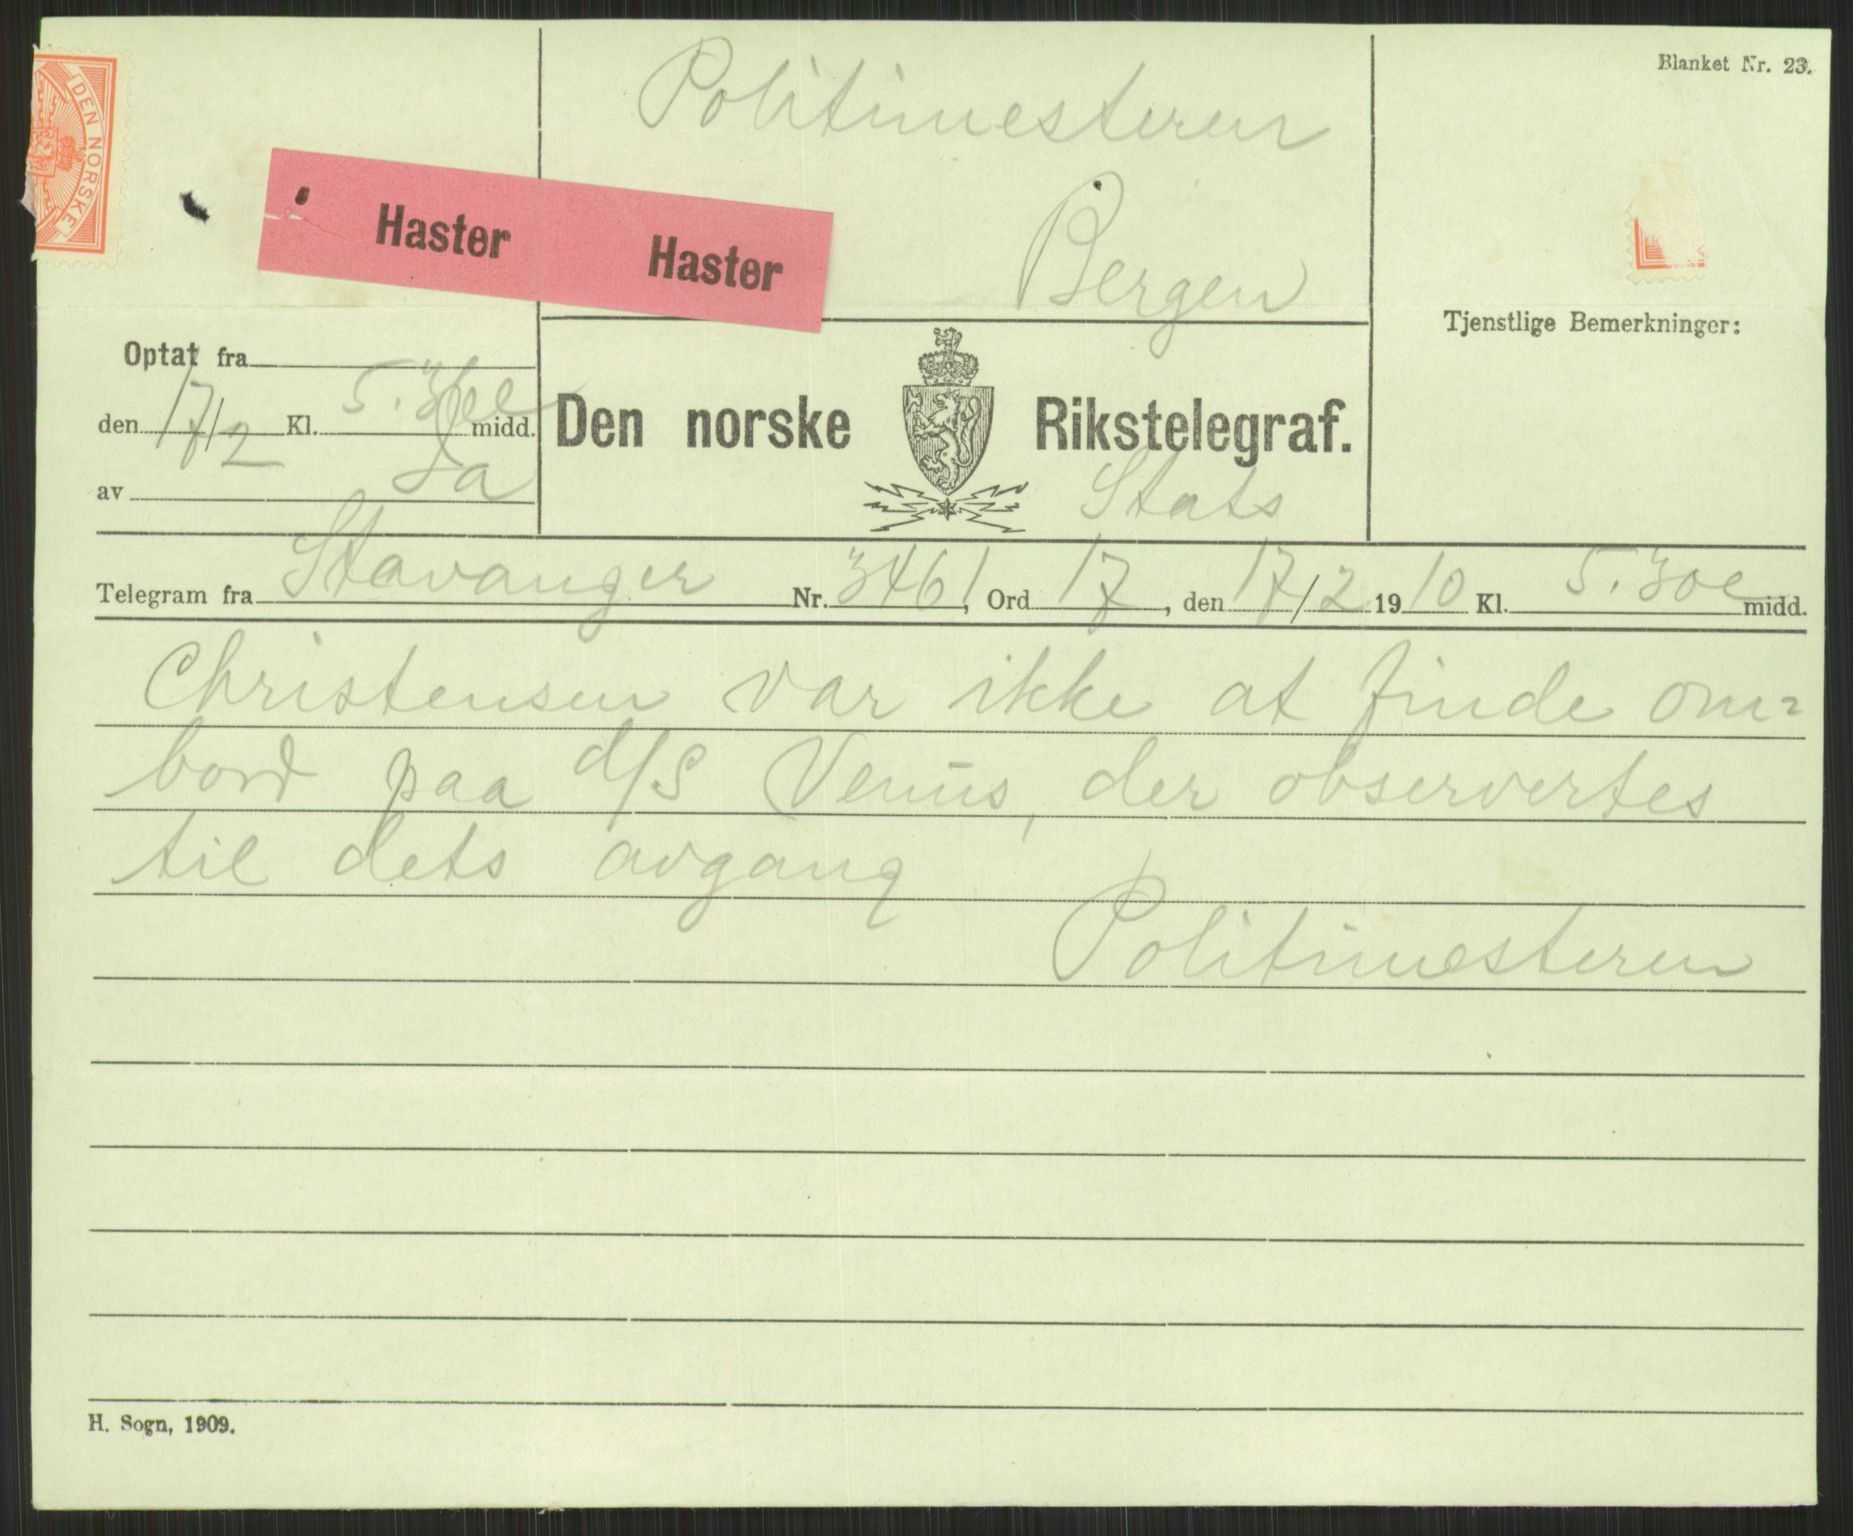 Blanket Nr. 23.
DEN NORSKE
Politimesteren
Bergen
Haster Haster
Tjenstlige Bemerkninger:
Optat fra
den 17/2 Kl. 5.36e midd.
av Ja
Den norske Rikstelegraf.
Stats
Telegram fra Stavanger Nr. 3461, Ord 17, den 17/2 1910 Kl. 5.30e midd.
Christensen var ikke at finde om=
bord paa d/s Venus, der observertes
til dets avgang
Politimesteren
H. Sogn, 1909.